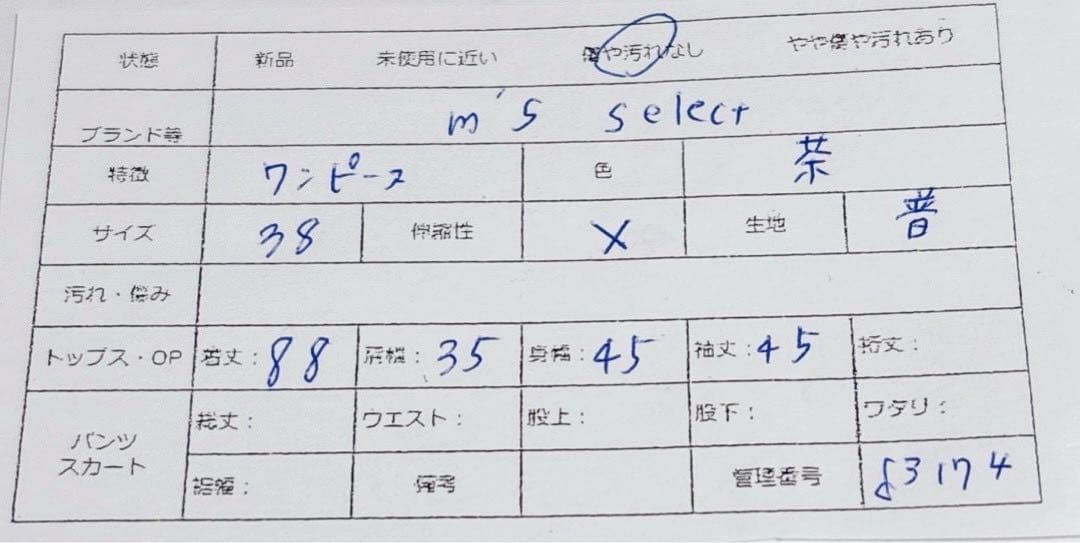 状態 新品 未使用に近い 傷や汚れなし やや傷や汚れあり
ブランド等 m's select
特徴 ワンピース 色 茶
サイズ 38 伸縮性 X 生地 普
汚れ・傷み
トップス・OP 着丈: 88 肩幅: 35 身幅: 45 袖丈: 45 裄丈:
パンツ 総丈: ウエスト: 股上: 股下: ワタリ:
スカート 裾幅: 備考 管理番号 3174